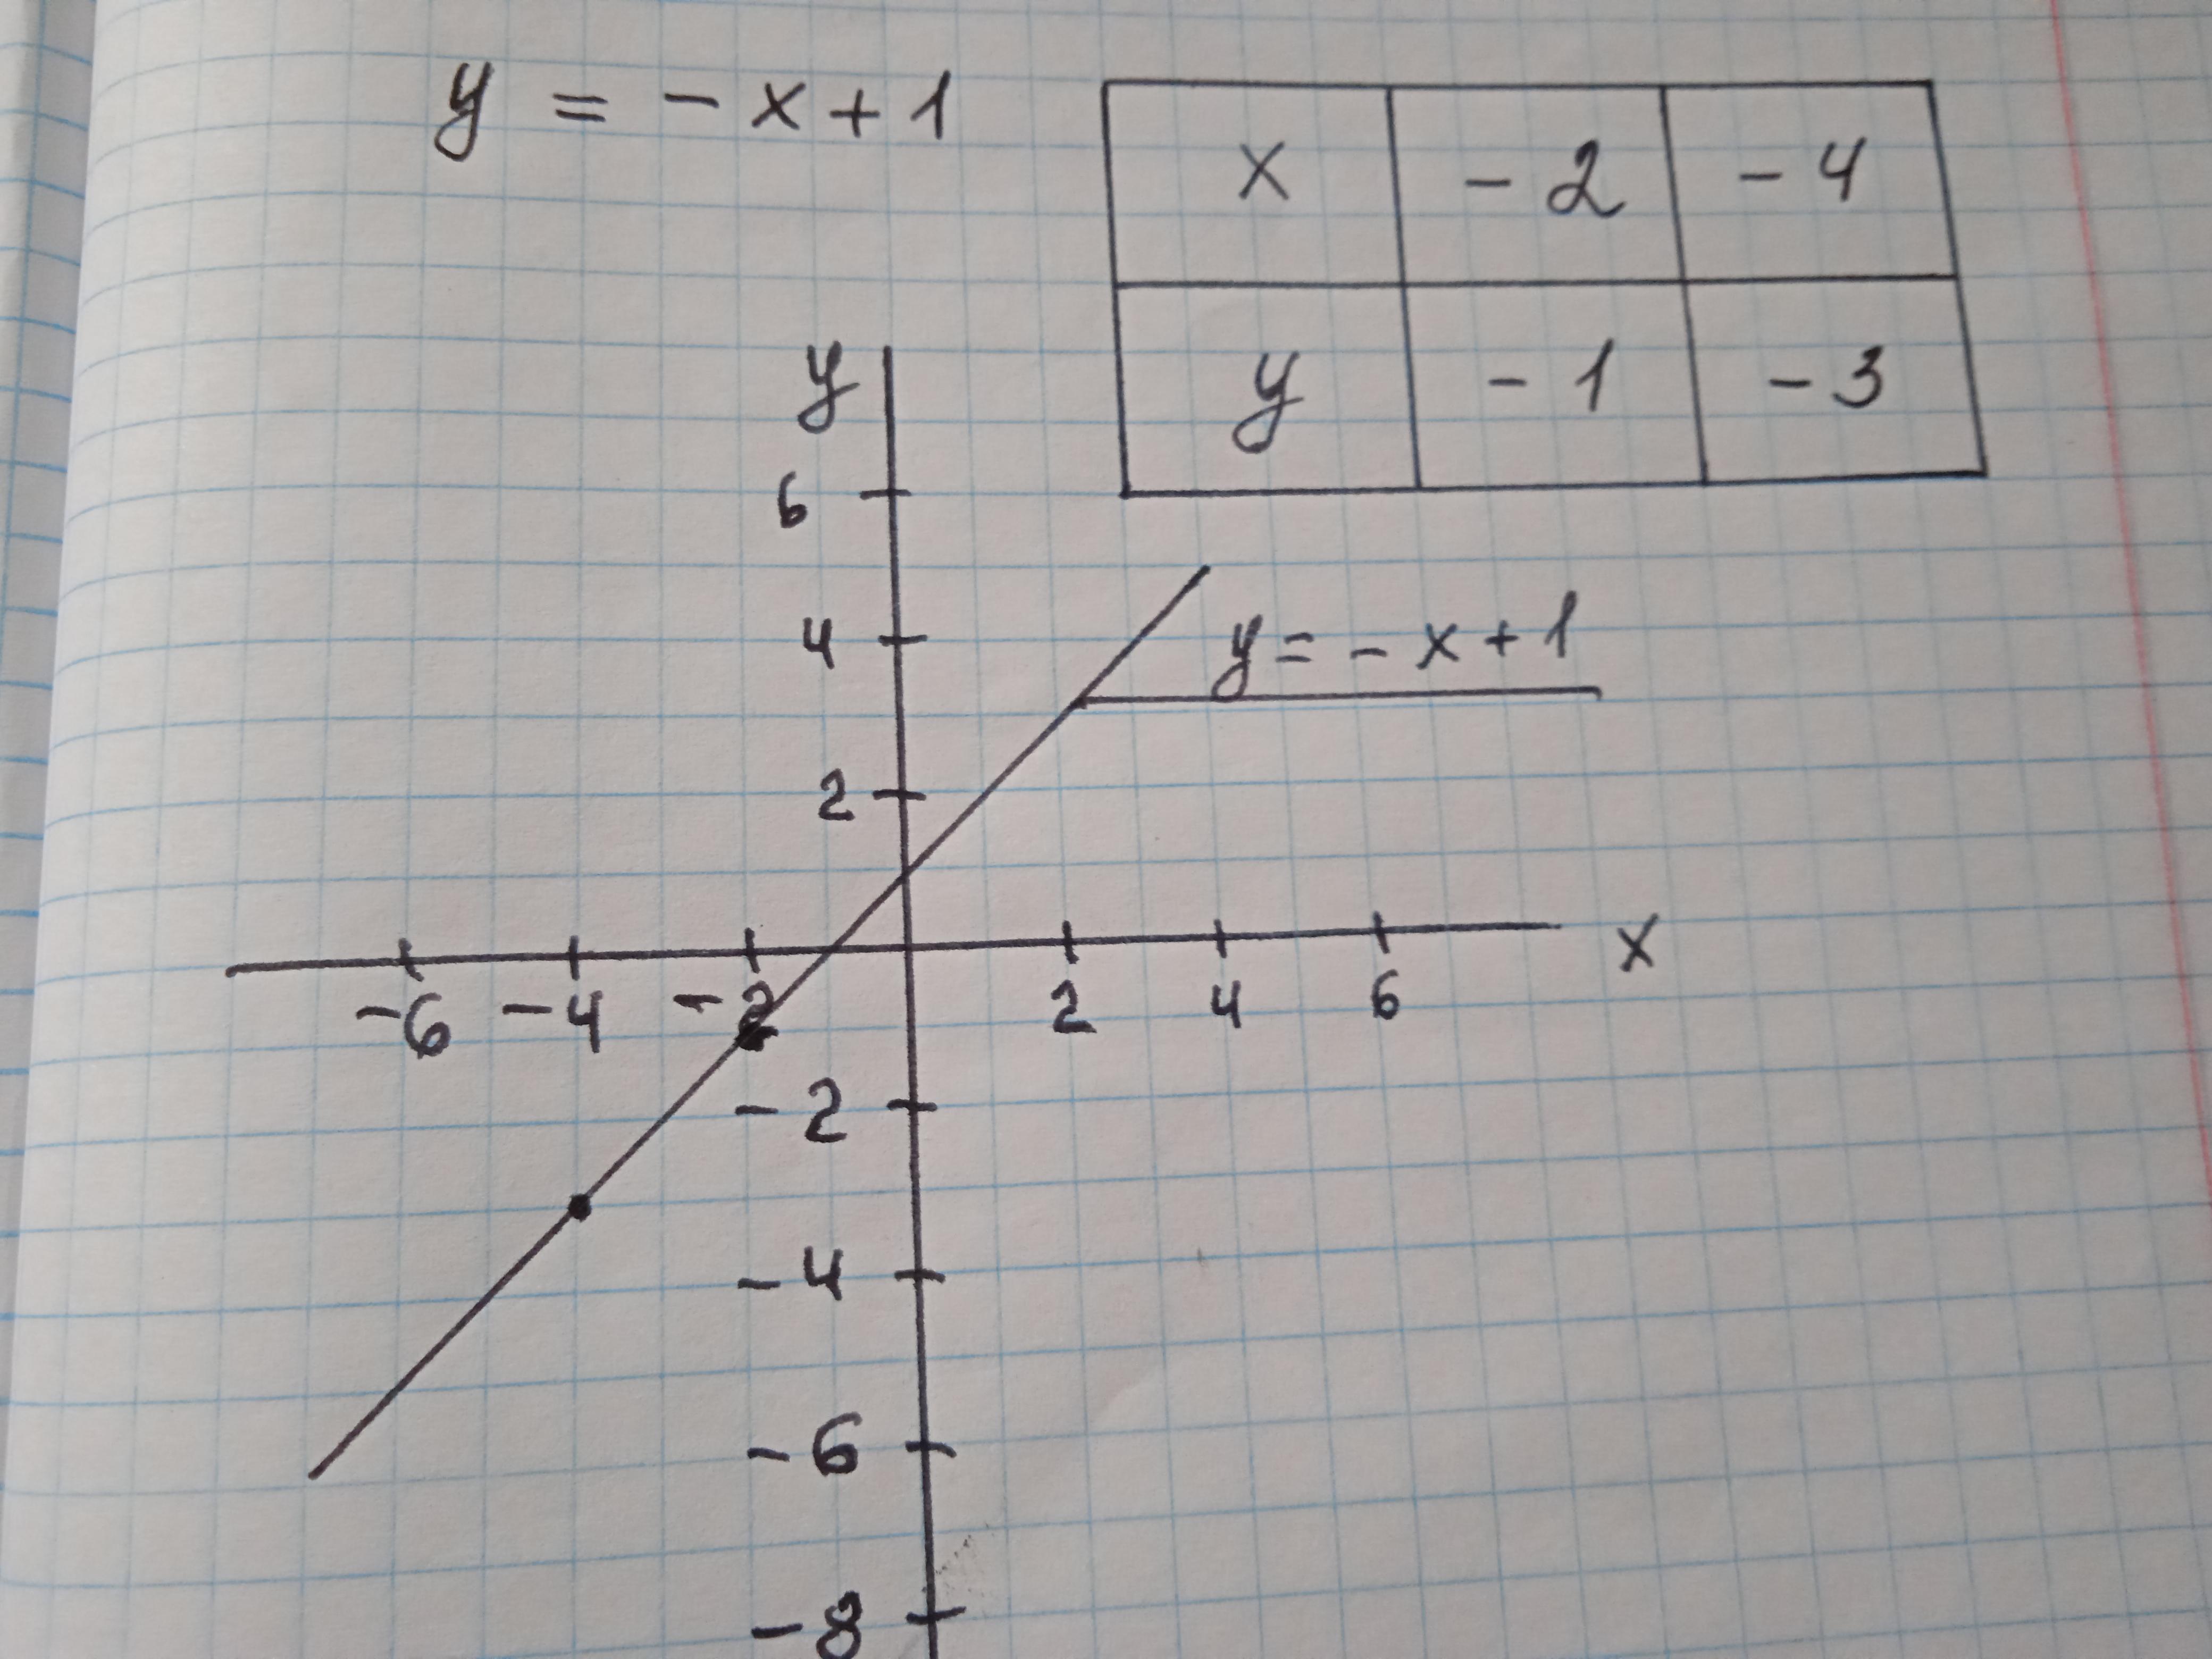 y = - x + 1
x - 2 - 4
y - 1 - 3
y
6
4
y = - x + 1
2
x
-6 -4 -2 2 4 6
- 2
- 4
- 6
- 8